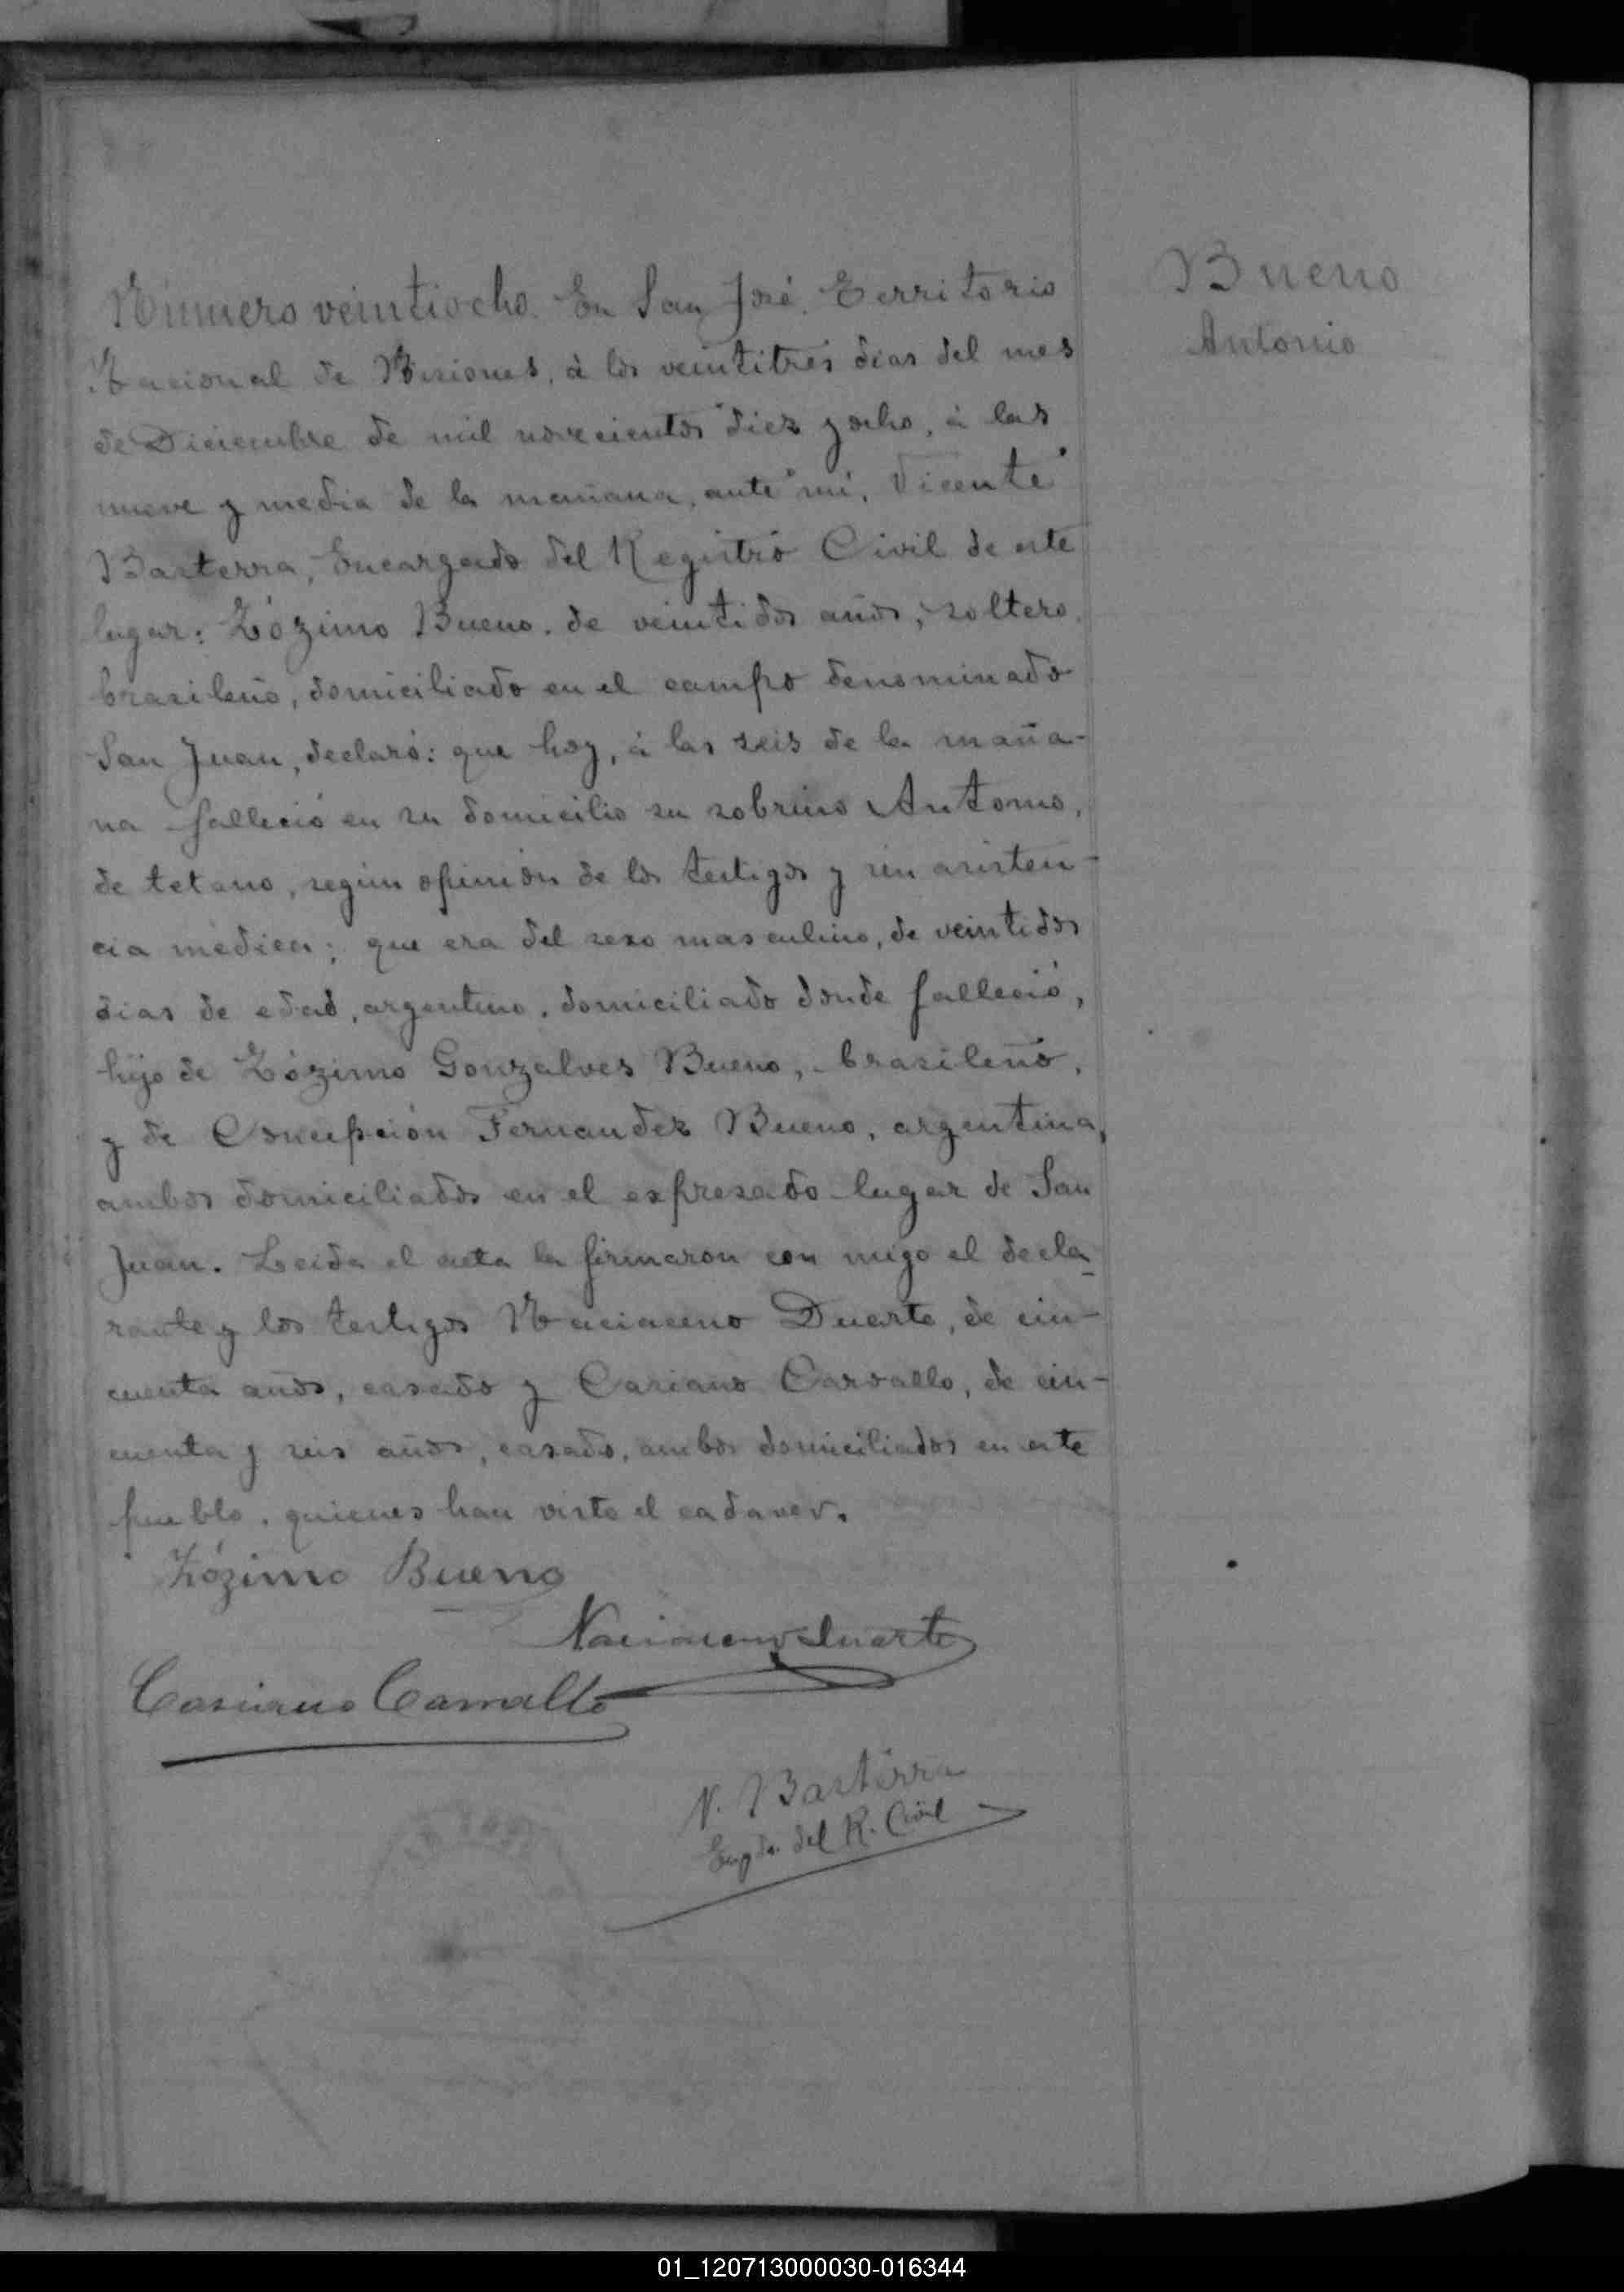 Bueno
Antonio
Número veintiocho. En San José, Territorio
Nacional de Misiones, à los veintitrés dias del mes
de Diciembre de mil novecientos diez y ocho, à las
nueve y media de la mañana, ante mi, Vicente
Basterra, Encargado del Registro Civil de este
lugar: Zózimo Bueno, de veintidos años, soltero,
brasileño, domiciliado en el campo denominado
San Juan, declaró: que hoy, à las seis de la maña-
na falleció en su domicilio su sobrino Antonio,
de tetano, según opinión de los testigos y sin asisten-
cia médica; que era del sexo masculino, de veintidos
dias de edad, argentino, domiciliado donde falleció,
hijo de Zózimo Gonzalves Bueno, brasileño,
y de Concepción Fernandez Bueno, argentina,
ambos domiciliados en el expresado lugar de San
Juan. Leida el acta la firmaron con migo el decla-
rante y los testigos Naciaceno Duarte, de cin-
cuenta años, casado y Casiano Carvallo, de cin-
cuenta y seis años, casado, ambos domiciliados en este
pueblo, quienes han visto el cadaver.
Zózimo Bueno
Naciaceno Duarte
Casiano Carvallo
V. Basterra
Engdo. del R. Civil
01_120713000030-016344